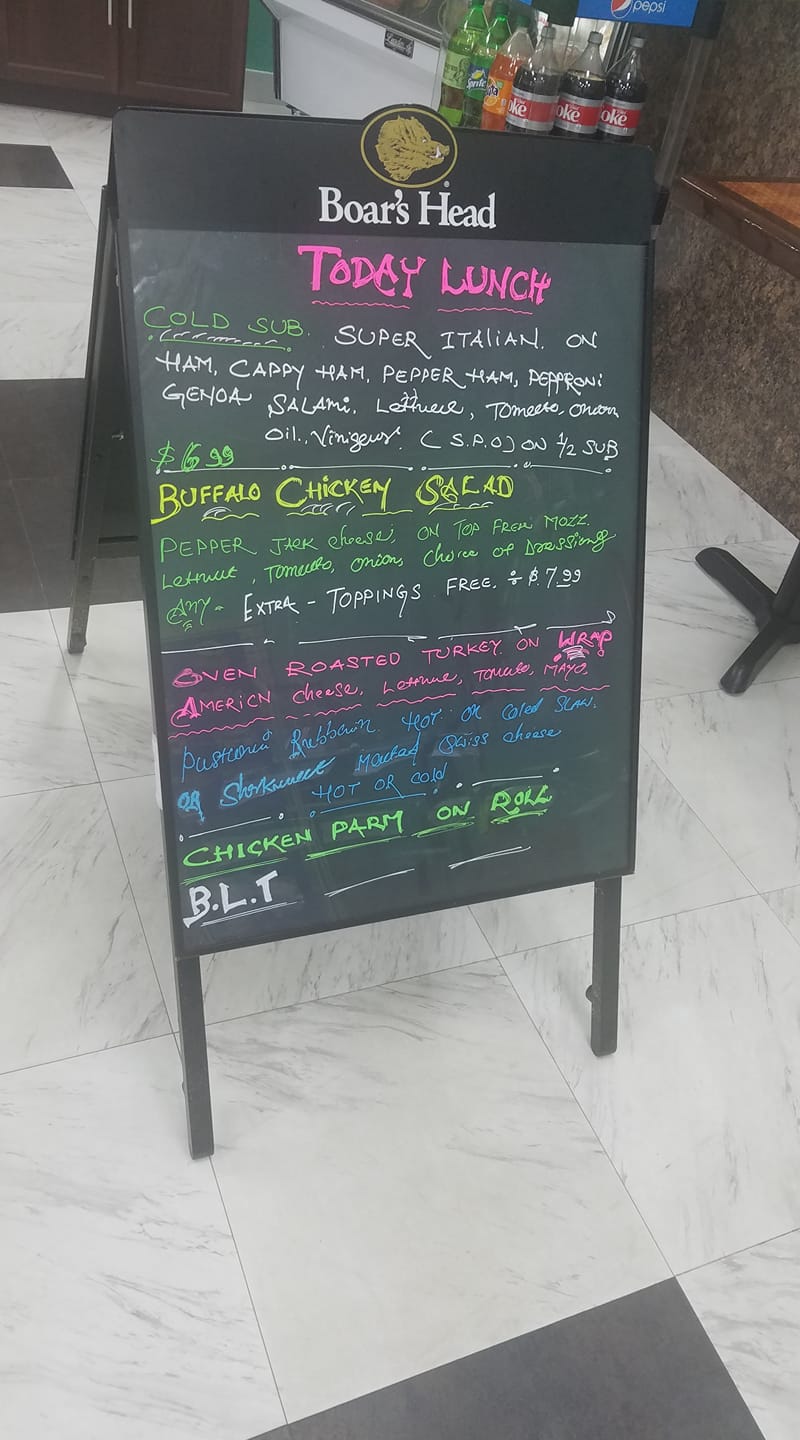 pepsi
Sprite
oke oke oke
Boar's Head
TODAY LUNCH
COLD SUB. SUPER ITALIAN. ON
HAM, CAPPY HAM, PEPPER HAM, PEPPRONI
GENOA SALAMI. Lettuce, Tomeeto, onion
Oil., Vinigeur. (S.P.O) ON 1/2 SUB
$ 6.99
BUFFALO CHICKEN SALAD
PEPPER JACK cheese, ON TOP FRESH MOZZ.
Lettuce, Tomeeto, onions, Choice of Dressing
ANY - EXTRA - TOPPINGS FREE. $ 7.99
OVEN ROASTED TURKEY ON WRAP
AMERICN cheese, Lettuce, Tomato, MAYO.
HOT OR Coled SLAW.
OR Swiss cheese
HOT OR COLD
CHICKEN PARM ON ROLL
B.L.T